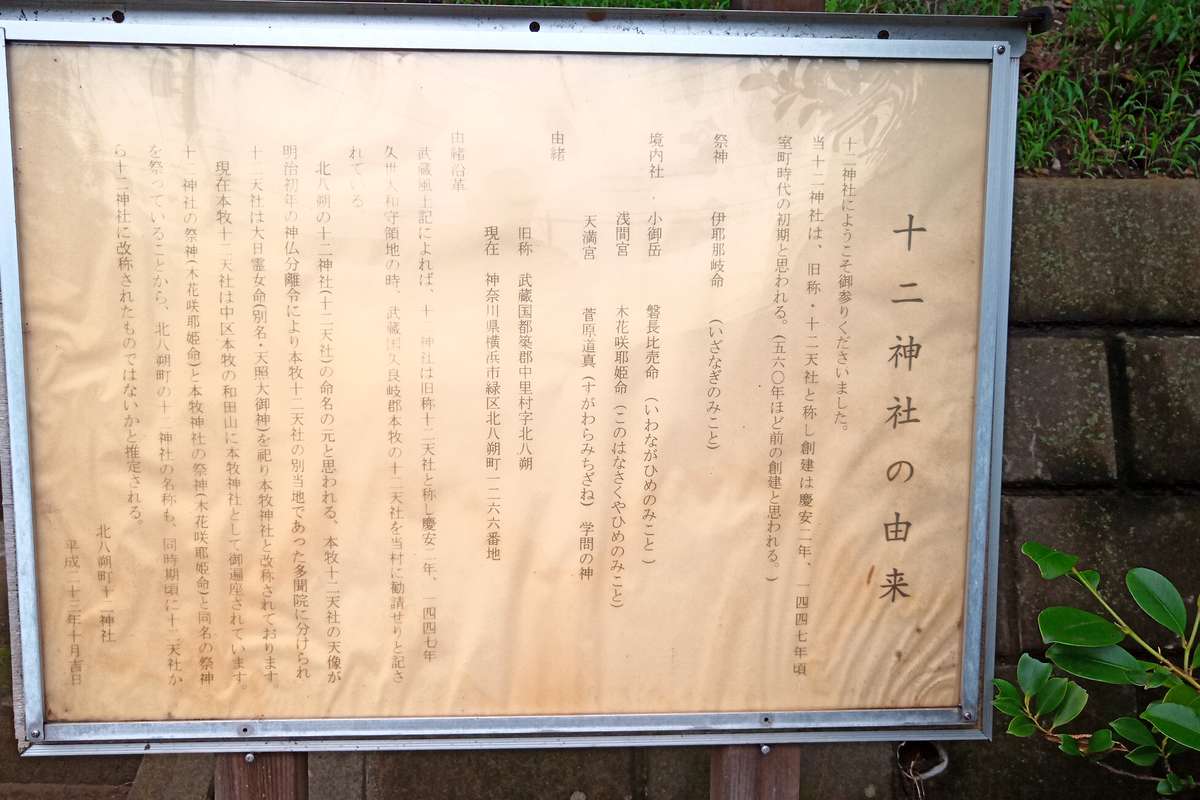 十二神社の由来
十二神社にようこそ御参りくださいました。
当十二神社は、旧称・十二天社と称し創建は慶安二年、一四四七年頃
室町時代の初期と思われる。(五六〇年ほど前の創建と思われる。)
祭神 伊耶那岐命 (いざなぎのみこと)
境内社 小御岳 磐長比売命 (いわながひめのみこと)
浅間宮 木花咲耶姫命 (このはなさくやひめのみこと)
天満宮 菅原道真 (すがわらみちざね) 学問の神
由緒
旧称 武蔵国都築郡中里村字北八朔
現在 神奈川県横浜市緑区北八朔町一二六六番地
由緒沿革
武蔵風土記によれば、十二神社は旧称十二天社と称し慶安二年、一四四七年
久世大和守領地の時、武蔵国久良岐郡本牧の十二天社を当村に勧請せりと記さ
れている
北八朔の十二神社(十二天社)の命名の元と思われる、本牧十二天社の天像が
明治初年の神仏分離令により本牧十二天社の別当地であった多聞院に分けられ
十二天社は大日霊女命(別名・天照大御神)を祀り本牧神社と改称されております。
現在本牧十二天社は中区本牧の和田山に本牧神社として御遍座されています。
十二神社の祭神(木花咲耶姫命)と本牧神社の祭神(木花咲耶姫命)と同名の祭神
を祭っていることから、北八朔町の十二神社の名称も、同時期頃に十二天社か
ら十二神社に改称されたものではないかと推定される。
北八朔町十二神社
平成二十三年十月吉日